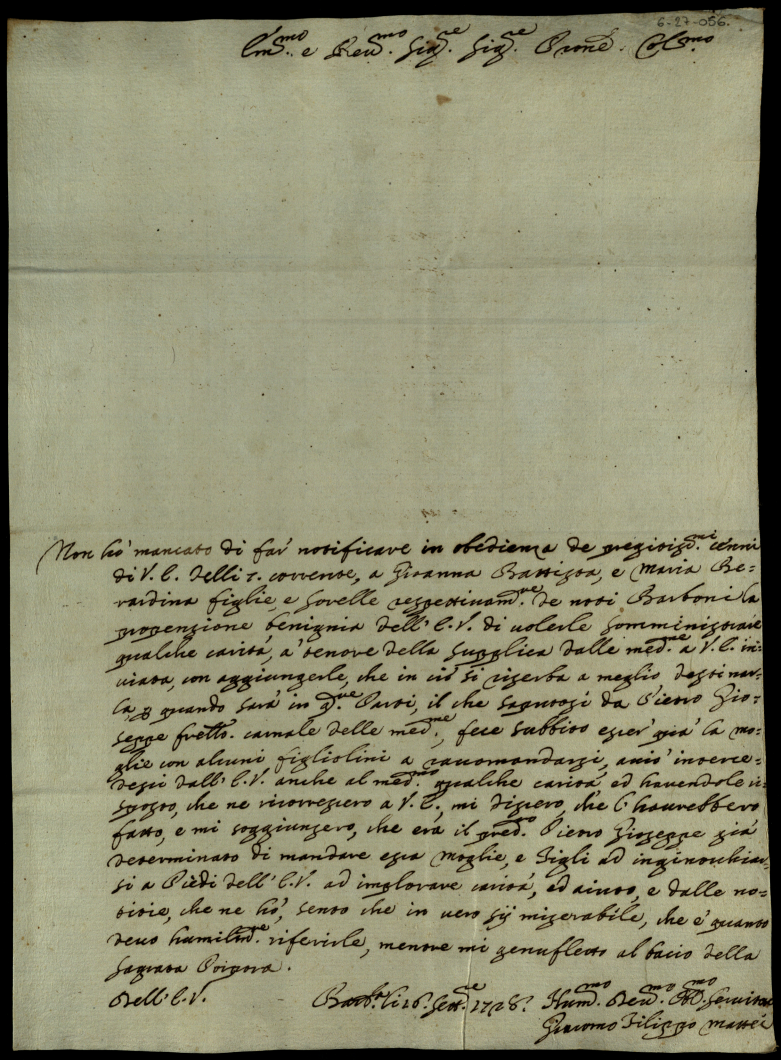 6-27-056.
Em.mo e Reu.mo Sig.re Sig.re Prone. Col.mo
Non hò mancato di far' notificare in obedienza de pregiatiss.mi cenni
di V. E. delli 7. corrente, a Gioanna Battista, e Maria Be=
rardina figlie, e sorelle respettivam.te de noti Barboni la
propenzione benignia dell' E. V. di volerle somministrare
qualche carità, a tenore della supplica dalle med.me a V. E. in=
viata, con aggiungerle, che in ciò si riserba a meglio destinar=
la p quando sarà in q.ste Parti, il che saputosi da Pietro Gio=
seppe fretto. carnale delle med.me, fece subbito esser' quà la mo=
glie con alcuni figliolini a raccomandarsi, acciò intercedessi
dall' E. V. anche al med.mo qualche carità, ed havendole ri=
sposto, che ne ricorressero a V. E., mi dissero, che l' haurebbero
fatto, e mi soggiunsero, che era il pred.o Pietro Gioseppe già
determinato di mandare essa Moglie, e Figli ad inginocchiar=
si a Piedi dell' E. V. ad implorare carità, ed aiuto, e dalle no=
titie, che ne hò, sento che in vero sij miserabile, che è quanto
devo humilm.te riferirle, mentre mi genufletto al bacio della
Sagrata Porpora.
Dell' E. V. Barb.o li 16. Sett.re 1728. Hum.mo Deu.mo Obl.mo Seruitore
Giacomo Filippo Mattei